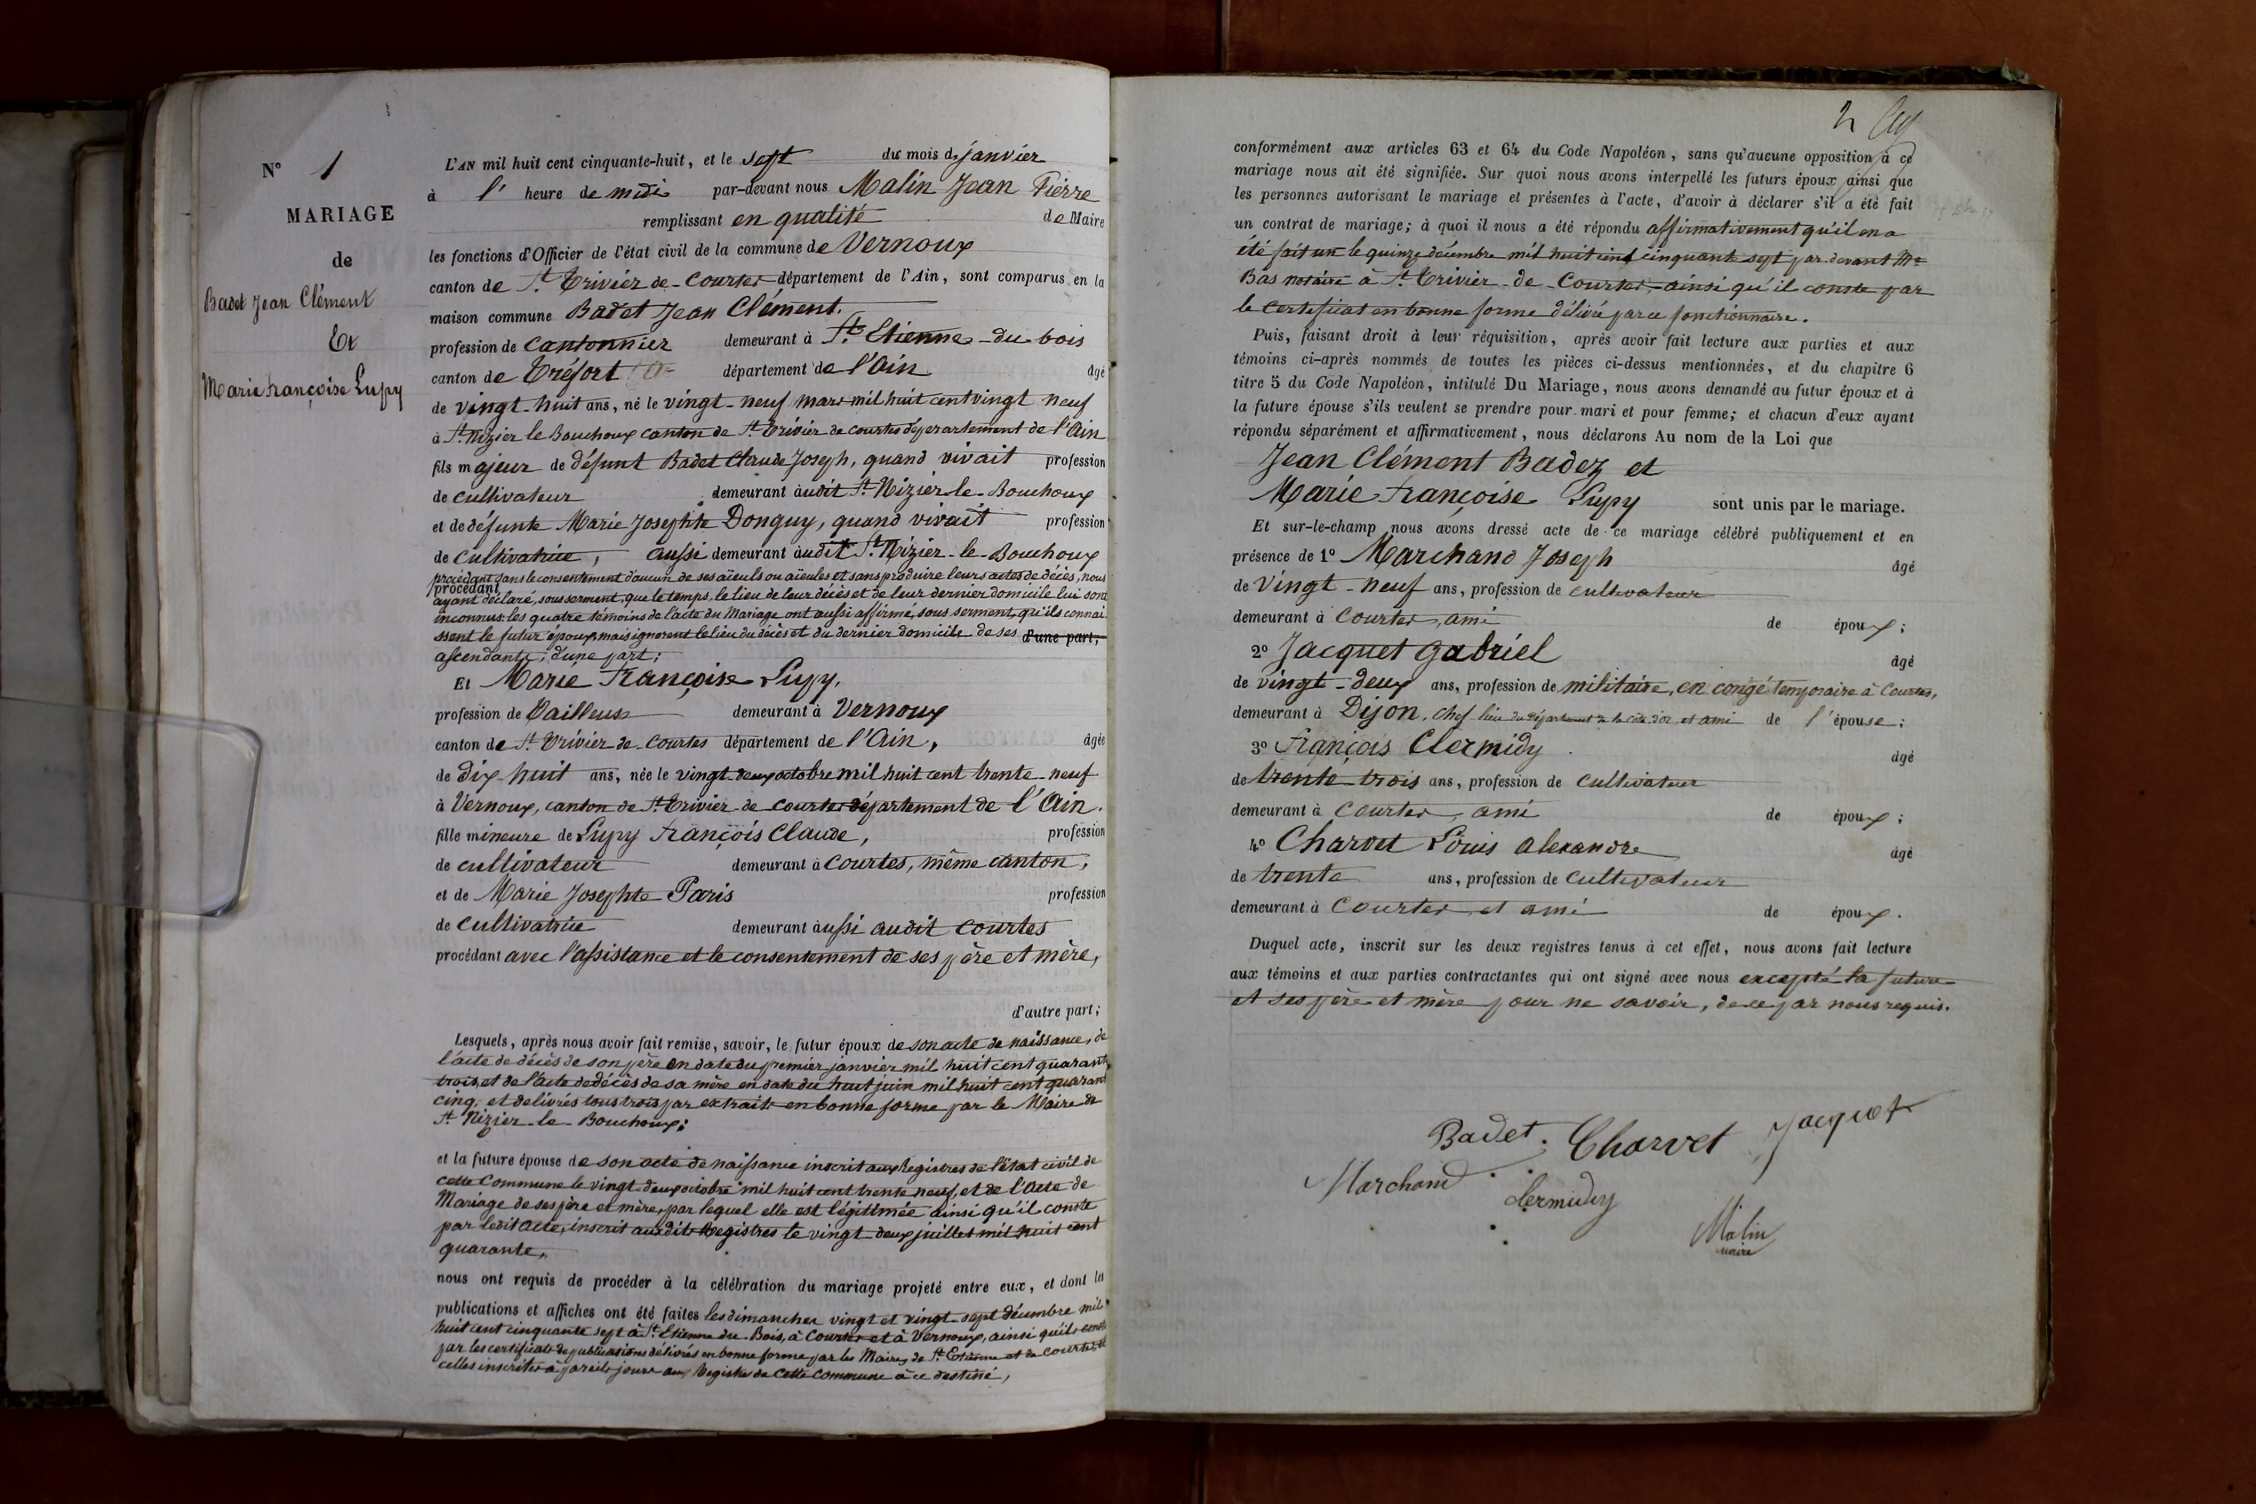 N° 1
MARIAGE
de
Badet Jean Clément
Et
Marie françoise Lupy
L'AN mil huit cent cinquante-huit, et le sept du mois de janvier
à l' heure de midi par-devant nous Malin Jean Pierre
remplissant en qualité de Maire
les fonctions d'Officier de l'état civil de la commune de Vernoux
canton de St Trivier de Courtes département de l'Ain, sont comparus en la
maison commune Badet Jean Clément.
profession de cantonnier demeurant à St Etienne du bois
canton de Tréfort département de l'Ain âgé
de vingt-huit ans, né le vingt-neuf mars mil huit cent vingt neuf
à St Nizier le Bouchoux canton de St Trivier de Courtes département de l'Ain
fils majeur de défunt Badet Claude Joseph, quand vivait profession
de cultivateur demeurant audit St Nizier-le-Bouchoux
et de défunte Marie Josephte Donguy, quand vivait profession
de cultivatrice, aussi demeurant audit St Nizier-le-Bouchoux
procédant sans le consentement d'aucun de ses aïeuls ou aïeules et sans produire leurs actes de décès, nous
procédant
ayant déclaré, sous serment, que le temps, le lieu de leur décès et de leur dernier domicile lui sont
inconnus: les quatre témoins de l'acte du Mariage ont aussi affirmé, sous serment, qu'ils connai-
ssent le futur époux, mais ignorent le lieu du décès et du dernier domicile de ses d'une part;
ascendants; d'une part;
Et Marie Françoise Lupy,
profession de Tailleuse demeurant à Vernoux
canton de St Trivier de Courtes département de l'Ain, âgée
de dix-huit ans, née le vingt-deux octobre mil huit cent trente-neuf
à Vernoux, canton de St Trivier de Courtes département de l'Ain.
fille mineure de Lupy François Claude, profession
de cultivateur demeurant à Courtes, même canton,
et de Marie Josephte Paris profession
de cultivatrice demeurant aussi audit Courtes
procédant avec l'assistance et le consentement de ses père et mère,
d'autre part;
Lesquels, après nous avoir fait remise, savoir, le futur époux de son acte de naissance, de
l'acte de décès de son père en date du premier janvier mil huit cent quarante
trois, et de l'acte de décès de sa mère en date du huit juin mil huit cent quarante
cinq, et delivrés tous trois par extraits en bonne forme par le Maire de
St Nizier-le-Bouchoux;
et la future épouse de son acte de naissance inscrit aux Registres de l'état civil de
cette Commune le vingt-deux octobre mil huit cent trente neuf, et de l'acte de
Mariage de ses père et mère, par lequel elle est légitimée ainsi qu'il conste
par ledit acte, inscrit auxdits Registres le vingt-deux juillet mil huit cent
quarante,
nous ont requis de procéder à la célébration du mariage projeté entre eux, et dont les
publications et affiches ont été faites les dimanches vingt et vingt-sept décembre mil
huit cent cinquante sept à St Etienne du-Bois, à Courtes et à Vernoux, ainsi qu'il conste
par les certificats de publications délivrés en bonne forme par les Maires de St Etienne et de Courtes et
celles inscrites à pareils jours aux Registres de cette Commune à ce destiné,
2
conformément aux articles 63 et 64 du Code Napoléon, sans qu'aucune opposition à ce
mariage nous ait été signifiée. Sur quoi nous avons interpellé les futurs époux ainsi que
les personnes autorisant le mariage et présentes à l'acte, d'avoir à déclarer s'il a été fait
un contrat de mariage; à quoi il nous a été répondu affirmativement qu'il en a
été fait un le quinze décembre mil huit cent cinquante sept par-devant Me
Bas notaire à St Trivier-de-Courtes, ainsi qu'il conste par
le certificat en bonne forme délivré par ce fonctionnaire.
Puis, faisant droit à leur réquisition, après avoir fait lecture aux parties et aux
témoins ci-après nommés de toutes les pièces ci-dessus mentionnées, et du chapitre 6
titre 5 du Code Napoléon, intitulé Du Mariage, nous avons demandé au futur époux et à
la future épouse s'ils veulent se prendre pour mari et pour femme; et chacun d'eux ayant
répondu séparément et affirmativement, nous déclarons Au nom de la Loi que
Jean Clément Badez et
Marie Françoise Lupy sont unis par le mariage.
Et sur-le-champ nous avons dressé acte de ce mariage célébré publiquement et en
présence de 1° Marchand Joseph âgé
de vingt-neuf ans, profession de cultivateur
demeurant à Courtes, ami de époux;
2° Jacquet gabriel âgé
de vingt-deux ans, profession de militaire, en congé temporaire à Courtes,
demeurant à Dijon, chef lieu du département de la Côte d'or et ami de l'épouse;
3° François Clermidy âgé
de trente-trois ans, profession de cultivateur
demeurant à Courtes, ami de époux;
4° Charvet Louis alexandre âgé
de trente ans, profession de cultivateur
demeurant à Courtes et ami de époux.
Duquel acte, inscrit sur les deux registres tenus à cet effet, nous avons fait lecture
aux témoins et aux parties contractantes qui ont signé avec nous excepté la future
et ses père et mère pour ne savoir, de ce par nous requis.
Badet. Charvet Jacquet
Marchand Clermidy
Malin
maire